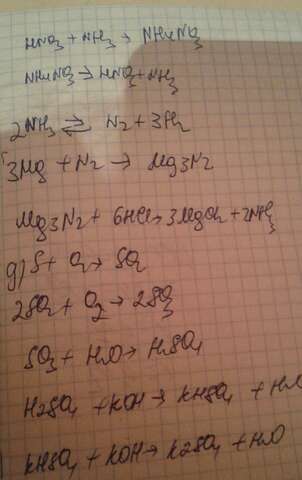 HNO3 + NH3 → NH4NO3
NH4NO3 → HNO3 + NH3
2NH3 ⇌ N2 + 3H2
3Mg + N2 → Mg3N2
Mg3N2 + 6HCl → 3MgCl2 + 2NH3
д) S + O2 → SO2
2SO2 + O2 → 2SO3
SO3 + H2O → H2SO4
H2SO4 + KOH → KHSO4 + H2O
KHSO4 + KOH → K2SO4 + H2O